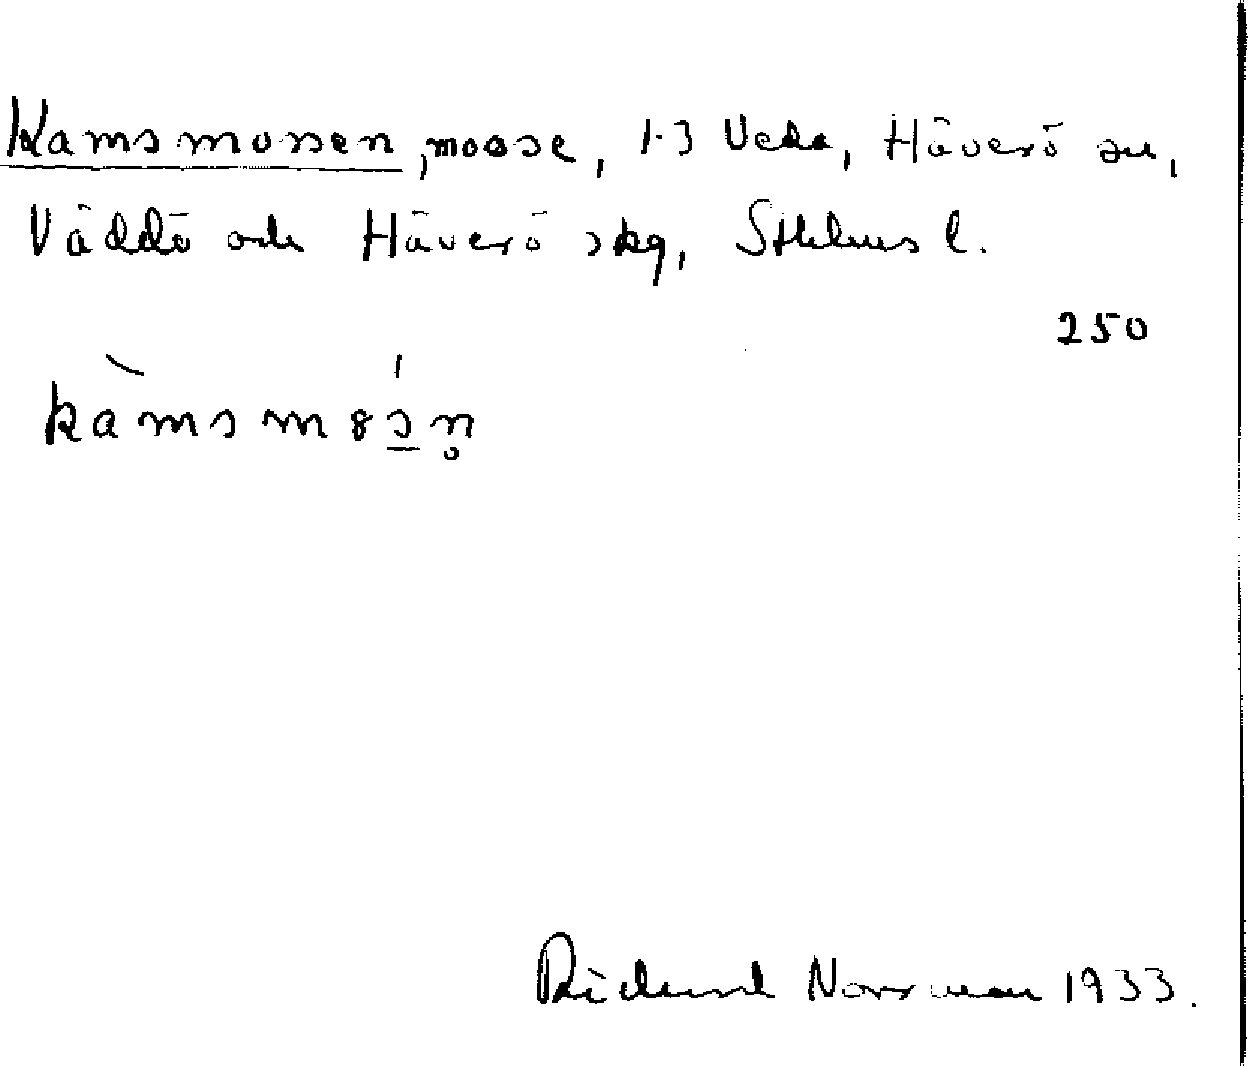 Kamsmossen, mosse, 1-3 Veda, Häverö sn,
Väddö och Häverö skg, Sthlms l.
250
kàmsm8s̲n̥
Rickard Norrman 1933.